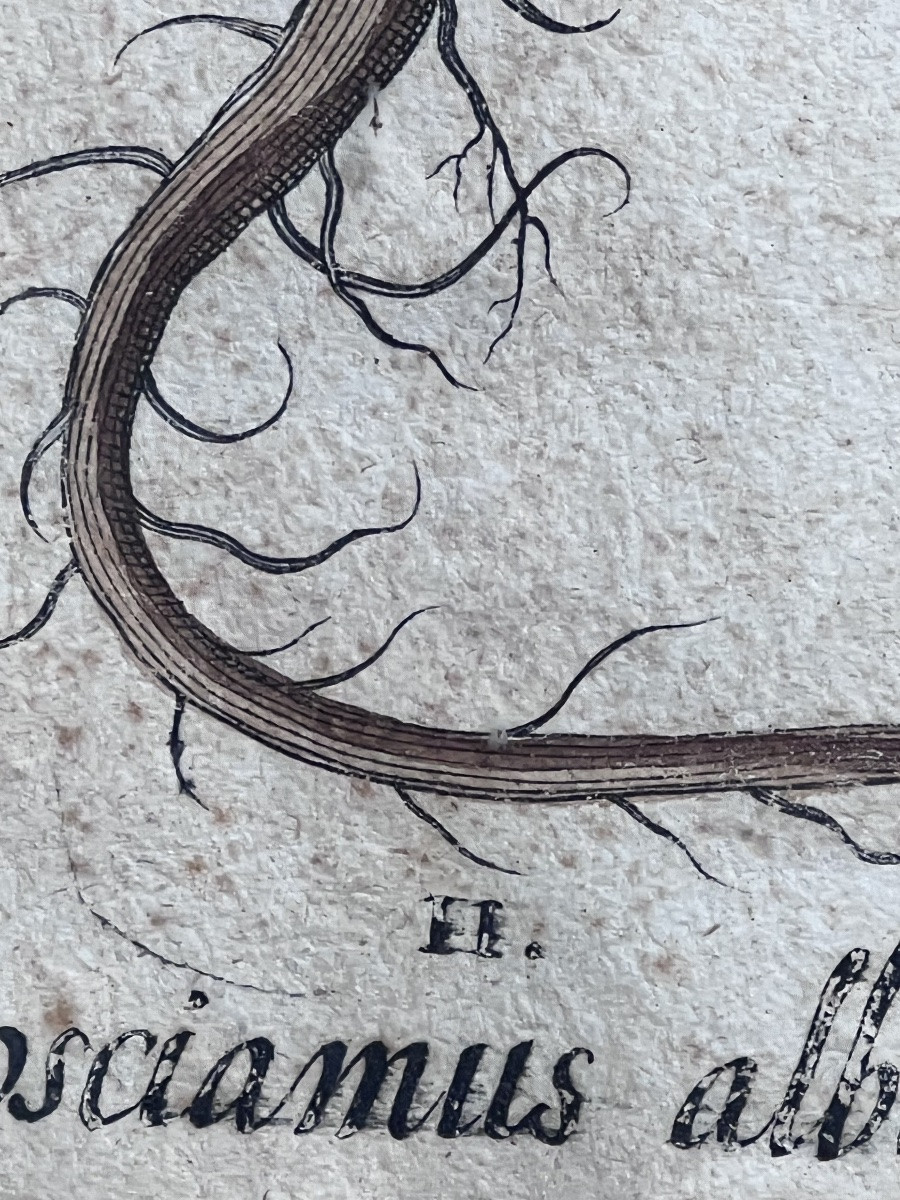 H.
osciamus alb